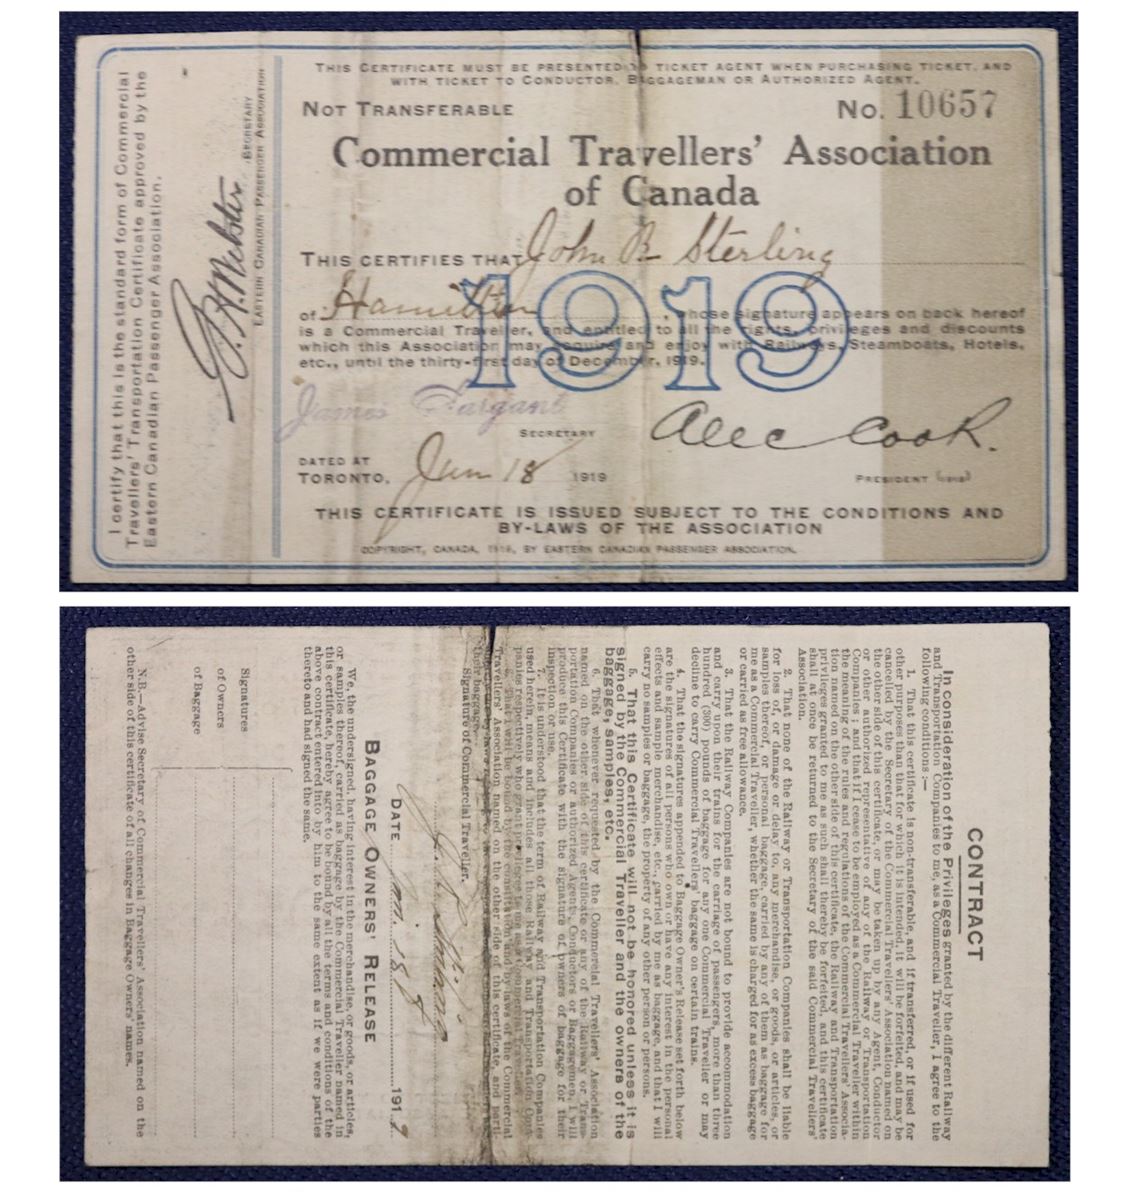 THIS CERTIFICATE MUST BE PRESENTED TO TICKET AGENT WHEN PURCHASING TICKET, AND
WITH TICKET TO CONDUCTOR, BAGGAGEMAN OR AUTHORIZED AGENT.
NOT TRANSFERABLE No. 10657
Commercial Travellers' Association
of Canada
THIS CERTIFIES THAT John B Sterling
of Hamilton, whose signature appears on back hereof
is a Commercial Traveller, and entitled to all the rights, privileges and discounts
which this Association may acquire and enjoy with Railways, Steamboats, Hotels,
etc., until the thirty-first day of December, 1919.
1919
James Sargant
SECRETARY
Alec Cook.
DATED AT
TORONTO, Jan 18 1919
PRESIDENT
THIS CERTIFICATE IS ISSUED SUBJECT TO THE CONDITIONS AND
BY-LAWS OF THE ASSOCIATION
COPYRIGHT, CANADA, BY EASTERN CANADIAN PASSENGER ASSOCIATION.
I certify that this is the standard form of Commercial
Travellers' Transportation Certificate approved by the
Eastern Canadian Passenger Association.
G. H. Webster
SECRETARY
EASTERN CANADIAN PASSENGER ASSOCIATION
CONTRACT
In consideration of the Privileges granted by the different Railway
and Transportation Companies to me, as a Commercial Traveller, I agree to the
following conditions:—
1. That this certificate is non-transferable, and if transferred or if used for
other purposes than that for which it is intended, it will be forfeited, and may be
cancelled by the Secretary of the Commercial Travellers' Association named on
the other side of this certificate, or may be taken up by any Agent, Conductor
or other authorized representative of any of the Railway or Transportation
Companies; and that if I cease to be employed as a Commercial Traveller within
the meaning of the rules and regulations of the Commercial Travellers' Associa-
tion named on the other side of this certificate, the Railway and Transportation
privileges granted to me as such shall thereby be forfeited, and this certificate
shall at once be returned to the Secretary of the said Commercial Travellers'
Association.
2. That none of the Railway or Transportation Companies shall be liable
for loss of, or damage or delay to, any merchandise, or goods, or articles, or
samples thereof, or personal baggage, carried by any of them as baggage for
me as a Commercial Traveller, whether the same is charged for as excess baggage
or carried as free allowance.
3. That the Railway Companies are not bound to provide accommodation
and carry upon their trains for the carriage of passengers, more than three
hundred (300) pounds of baggage for any one Commercial Traveller or may
decline to carry Commercial Travellers' baggage on certain trains.
4. That the signatures appended to Baggage Owner's Release set forth below
are the signatures of all persons who own or have any interest in the personal
effects and sample merchandise, etc., carried by me as baggage, and that I will
carry no samples or baggage, the property of any other person or persons.
5. That this Certificate will not be honored unless it is
signed by the Commercial Traveller and the owners of the
baggage, samples, etc.
6. That whenever requested by the Commercial Travellers' Association
named on the other side of this certificate or any of the Railway or Trans-
portation Companies or authorized Agents, Conductors or Baggagemen, I will
produce this Certificate with the signature of owners of baggage for their
inspection or use.
7. It is understood that the term of Railway and Transportation Companies
used herein, means and includes all those Railway and Transportation Com-
panies respectively who grant privileges to me as a Commercial Traveller.
8. That I will be bound by the constitution and by-laws of the Commercial
Travellers' Association named on the other side of this certificate, and parti-
Signature of Commercial Traveller.
John B Sterling
DATE Jan. 18 1919
BAGGAGE OWNERS' RELEASE
We, the undersigned, having interest in the merchandise, or goods, or articles,
or samples thereof, carried as baggage by the Commercial Traveller named in
this certificate, hereby agree to be bound by all the terms and conditions of the
above contract entered into by him to the same extent as if we were parties
thereto and had signed the same.
Signatures
of Owners
of Baggage
N.B.—Advise Secretary of Commercial Travellers' Association named on the
other side of this certificate of all changes in Baggage Owners' names.